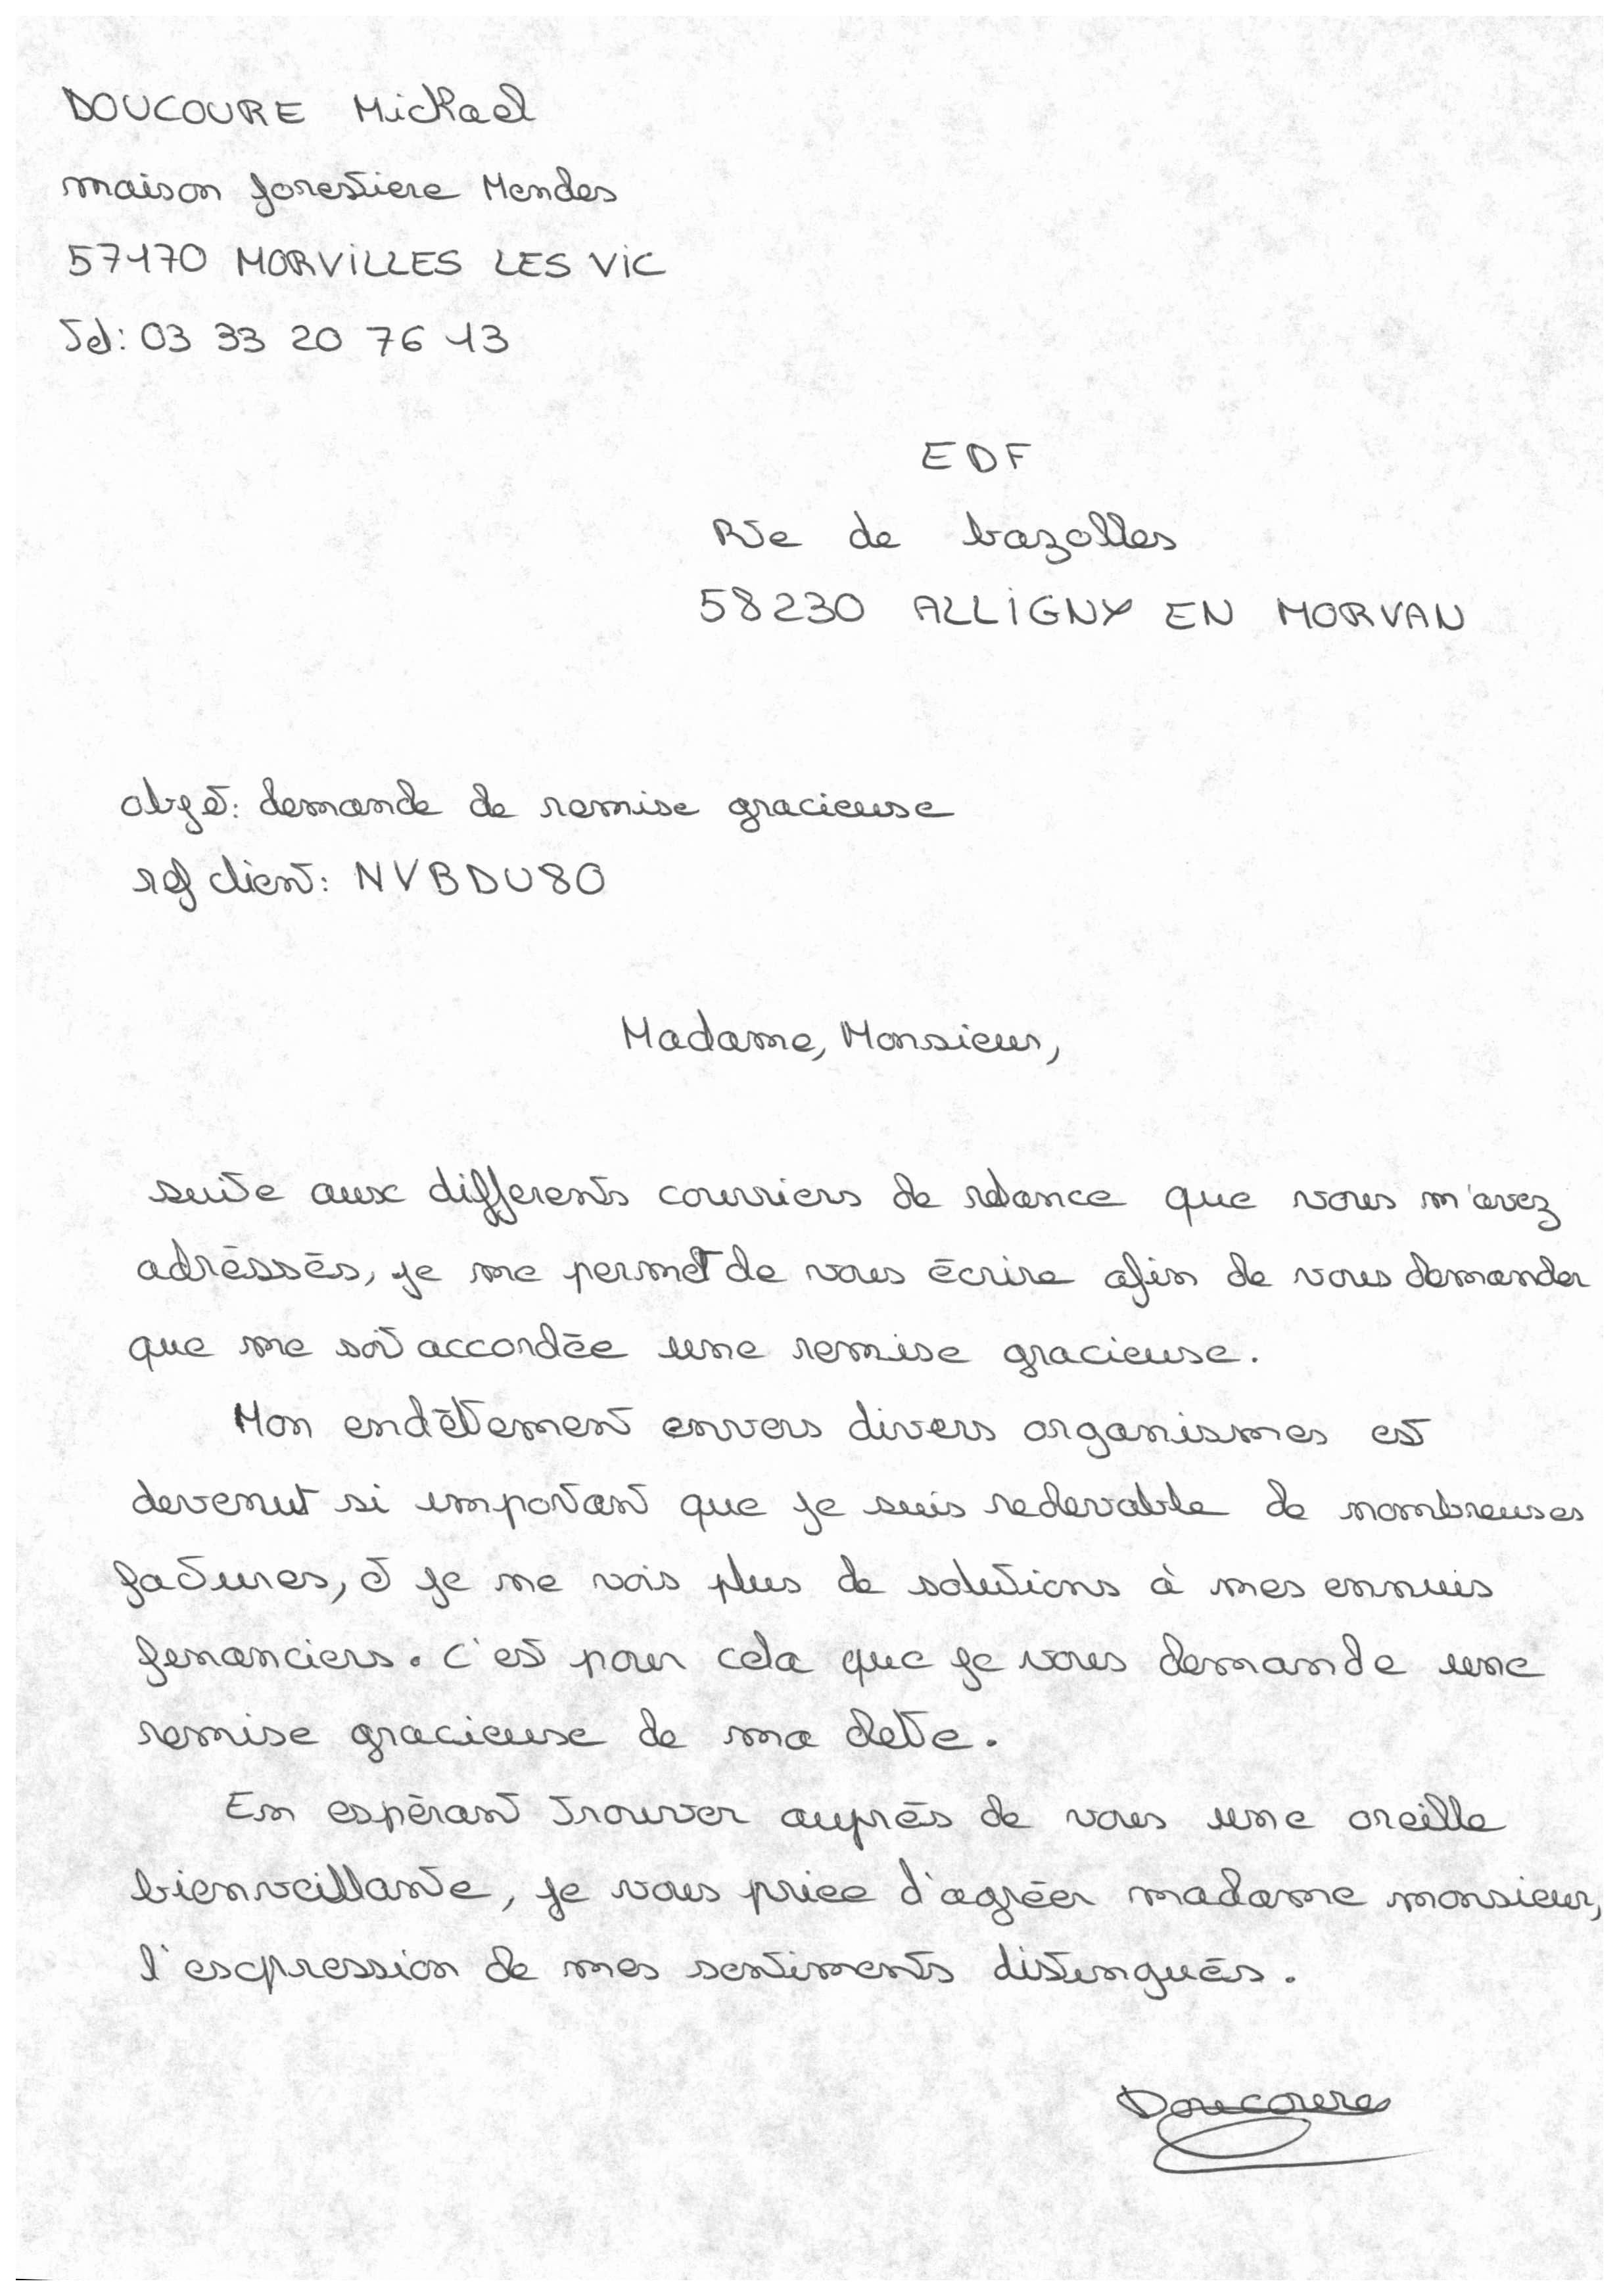 DOUCOURE Mickael
maison forestiere Mendes
57170 MORVILLES LES VIC
Tel: 03 33 20 76 13
EDF
Rte de bazolles
58230 ALLIGNY EN MORVAN
objet: demande de remise gracieuse
ref client: NVBDU80
Madame, Monsieur,
suite aux differents courriers de relance que vous m'avez
adréssés, je me permet de vous écrire afin de vous demander
que me soit accordée une remise gracieuse.
Mon endêttement envers divers organismes est
devenut si important que je suis redevable de nombreuses
factures, et je ne vois plus de solutions à mes ennuis
financiers. C'est pour cela que je vous demande une
remise gracieuse de ma dette.
En espérant trouver auprés de vous une oreille
bienveillante, je vous priee d'agréer madame monsieur,
l'expression de mes sentiments distingués.
Doucoure